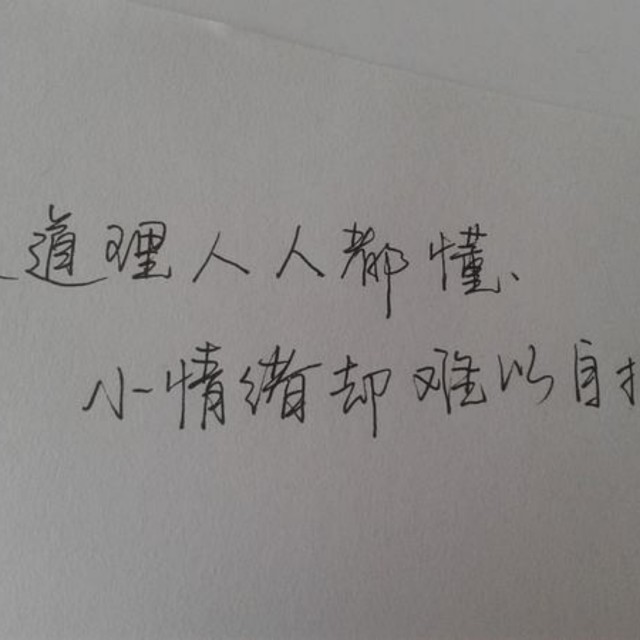 道理人人都懂、
小情绪却难以自